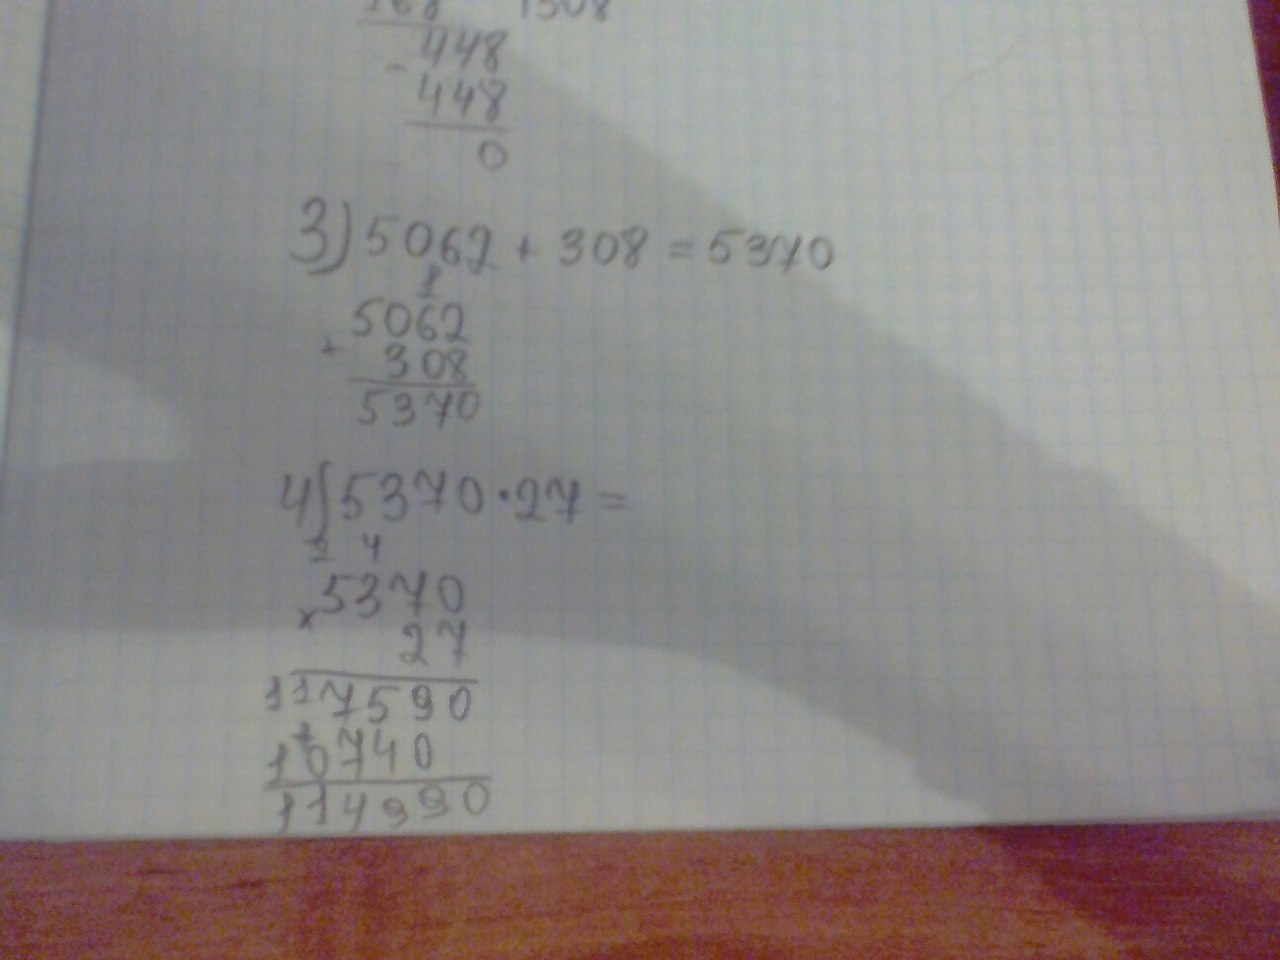 168 1308
448
- 448
0
3) 5062 + 308 = 5370
1
5062
+ 308
5370
4) 5370 · 27 =
2 4
× 5370
27
1 1
37590
+
10740
114990